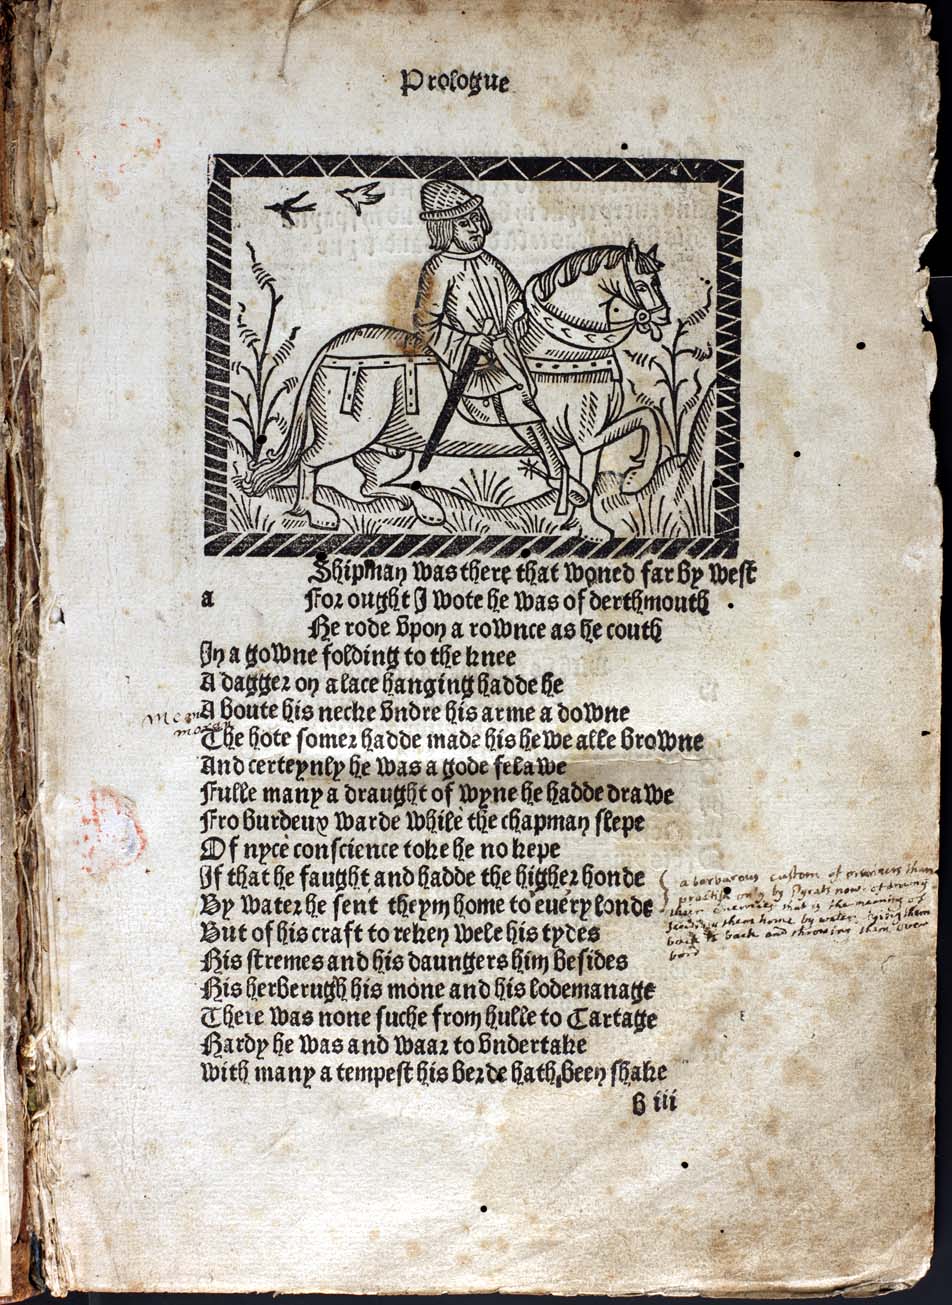 Prologue
Shipman was there that woned far by west
a
For ought I wote he was of derthmouth
He rode vpon a rownce as he couth
In a gowne folding to the knee
A dagger on a lace hanging hadde he
A boute his necke vndre his arme a downe
The hote somer hadde made his hewe alle browne
And certeynly he was a gode felawe
Fulle many a draught of wyne he hadde drawe
Fro burdeux warde while the chapman slepe
Of nyce conscience toke he no kepe
If that he faught and hadde the higher honde
By water he sent theym home to euery londe
But of his craft to reken wele his tydes
His stremes and his daungers him besides
His herberugh his mone and his lodemanage
There was none suche from hulle to Cartage
Hardy he was and waar to vndertake
with many a tempest his berde hath been shake
b iii
a barbarous custom of mariners than
practish only by Pyrats now. of drowning
their Enemies that is the meaning of
sending them home by water. tying them
back to back and throwing them over
bord